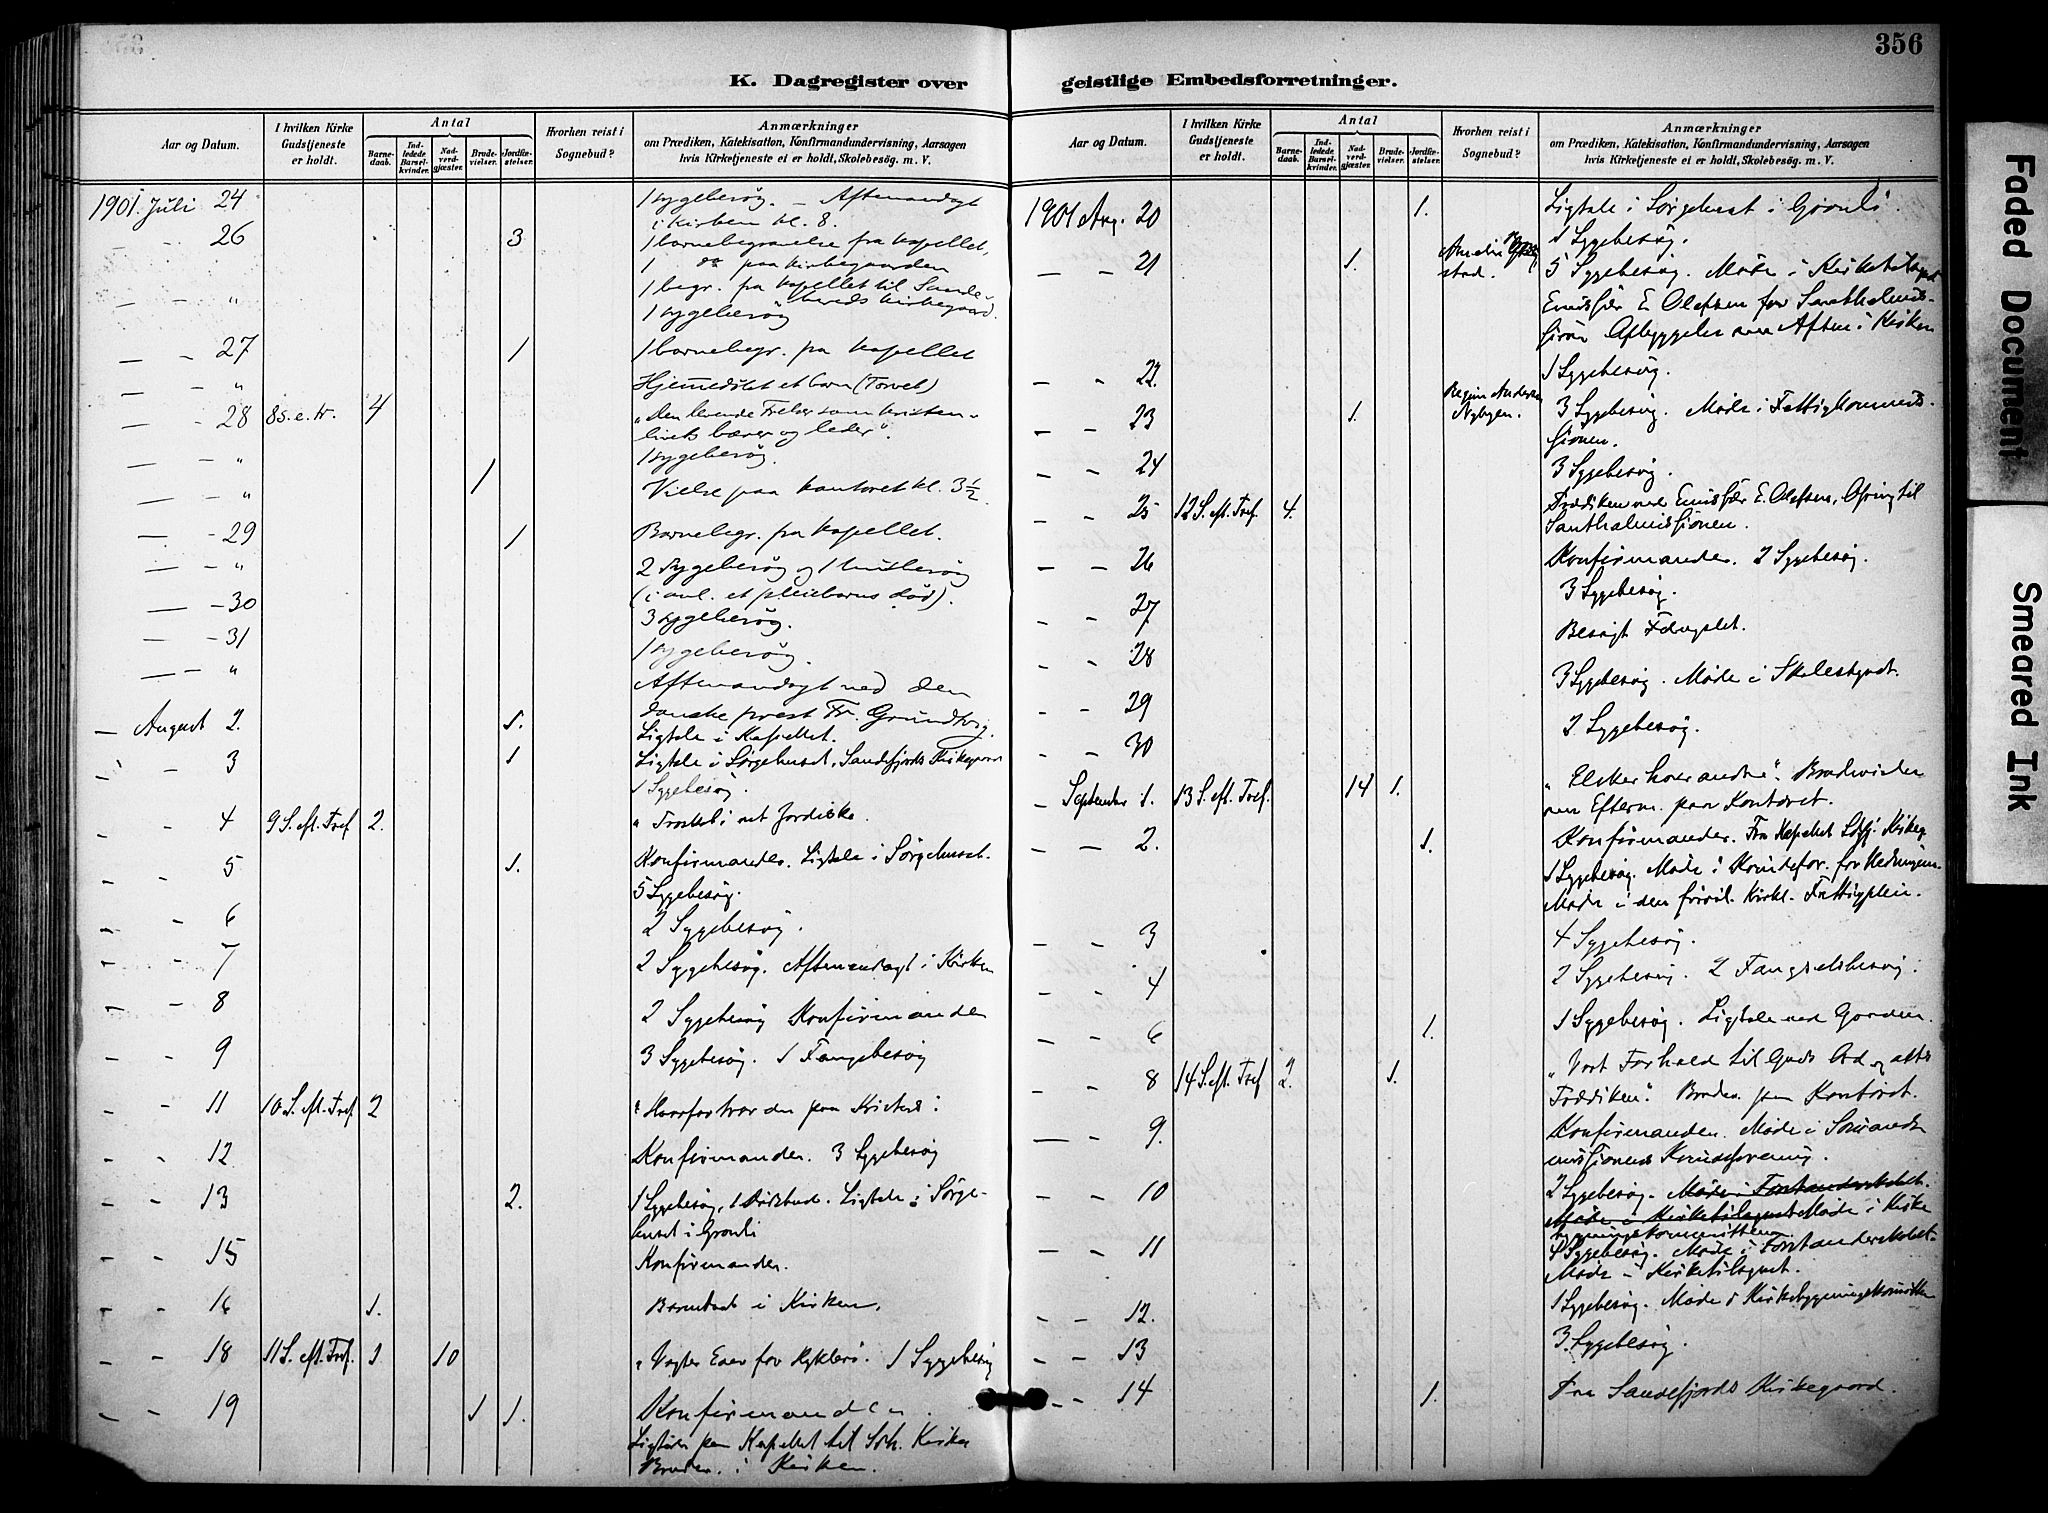 356
K. Dagregister over
Aar og Datum.
I hvilken Kirke Gudstjeneste er holdt.
Antal
Barnedaab.
Indledede Barselkvinder.
Nadverdgjæster.
Brudevielser.
Jordfæstelser.
Hvorhen reist i Sognebud?
Anmærkninger
om Prædiken, Katekisation, Konfirmandundervisning, Aarsagen
hvis Kirketjeneste ei er holdt, Skolebesøg. m. V.
1901. Juli 24 1 sygebesøg. – Aftenandagt
i kirken kl. 8.
26 3 1 barnebegravelse fra kapellet,
1 do paa kirkegaarden
1 begr. fra kapellet til Sande-
hereds kirkegaard.
" 1 sygebesøg
27 1 1 barnebegr. fra kapellet
" Hjemmedøbt et barn (Torvet)
28 8 s. e. tr. 4 "Den levende Frelser som kristen-
livets bærer og leder".
" 1 sygebesøg.
" 1 Vielse paa kontoret kl. 3 1/2.
29 1 Barnebegr. fra kapellet.
" 2 sygebesøg og 1 husbesøg
(i anl. et pleiebarns død).
30 3 sygebesøg.
31 1 sygebesøg.
" Aftenandagt ved den
danske prest Fr. Grundtvig.
August 2. 1. Ligtale i Kapellet.
3 1 Ligtale i Sørgehuset, Sandefjords Kirkegaard
1 Sygebesøg.
4 9 S. eft. Tref 2. Jordiske.
5 1. Konfirmander. Ligtale i Sørgehuset.
5 Sygebesøg.
6 2 Sygebesøg.
7 2 Sygebesøg. Aftenandagt i Kirken
8 2 Sygebesøg Konfirmander
9 3 Sygebesøg. 1 Fangebesøg
11 10 S. eft. Tref 2 "Hvorfor tror du paa Kristus".
12 Konfirmander. 3 Sygebesøg
13 2. 1 Sygebesøg, 1 Ligtale i Sørge-
huset i Grønli
15 Konfirmander.
16 1. Barnedaab i Kirken.
18 11 S. eft. Tref. 1 10 "Vogter Eder for Hykleri. 1 Sygebesøg
19 1 1. Konfirmanden.
Ligtale paa Kapellet til Sdh. Kirke
Brudev. i Kirken.
geistlige Embedsforretninger.
Aar og Datum.
I hvilken Kirke Gudstjeneste er holdt.
Antal
Barnedaab.
Indledede Barselkvinder.
Nadverdgjæster.
Brudevielser.
Jordfæstelser.
Hvorhen reist i Sognebud?
Anmærkninger
om Prædiken, Katekisation, Konfirmandundervisning, Aarsagen
hvis Kirketjeneste ei er holdt, Skolebesøg. m. V.
1901 Aug. 20 1. Ligtale i Sørgehuset i Grønli.
1 Sygebesøg.
21 1. 5 Sygebesøg. Møde i Kirketilsynet
Emissær E. Olafsen for Santhalmis-
sionen om Aften i Kirken
22. 1 Sygebesøg.
23 1. Nybyen. 3 Sygebesøg. Møde i Fattigkommis-
sionen.
24 3 Sygebesøg.
25 12 S. eft. Tref. 4. Prædiken ved Emissær E. Olafsen, Ofring til
Santhalmissionen.
26 Konfirmander. 2 Sygebesøg.
27 3 Sygebesøg.
28 Besøgt Fængslet.
29 3 Sygebesøg. Møde i Skolestyret.
30 2 Sygebesøg.
September 1. 13 S. eft. Tref. 14 1. "Elsker hverandre". Brudvielse
om Efterm. paa Kontoret.
2. 1. Konfirmander. Fra Kapellet Sdfj. Kirkeg.
1 Sygebesøg. Møde i Kvindefor. for Hedningem.
Møde i den frivil. kirkl. Fattigpleie.
3 4 Sygebesøg.
4 2 Sygebesøg. 2 Fængselsbesøg.
6 1. 1 Sygebesøg. Ligtale ved Graven.
8 14 S. eft. Tref 2. 1. "Vort Forhold til Guds Ord og dets
Prædiken". Brudev. paa Kontoret.
9. Konfirmanden. Møde i Sømands-
missionens Kvindeforening.
10 2 Sygebesøg. Møde i Forstanderskabet.
Møde i Kirketilsynet Møde i Kirke
bygningskommitteen
11 Sygebesøg. Møde i Forstanderskabet-
Møde i Kirketilsynet.
12. 1 Sygebesøg. Møde i Kirkebygningskomiteen
13 3 Sygebesøg.
14 1. Fra Sandefjords Kirkegaard.
Faded Document
Smeared Ink